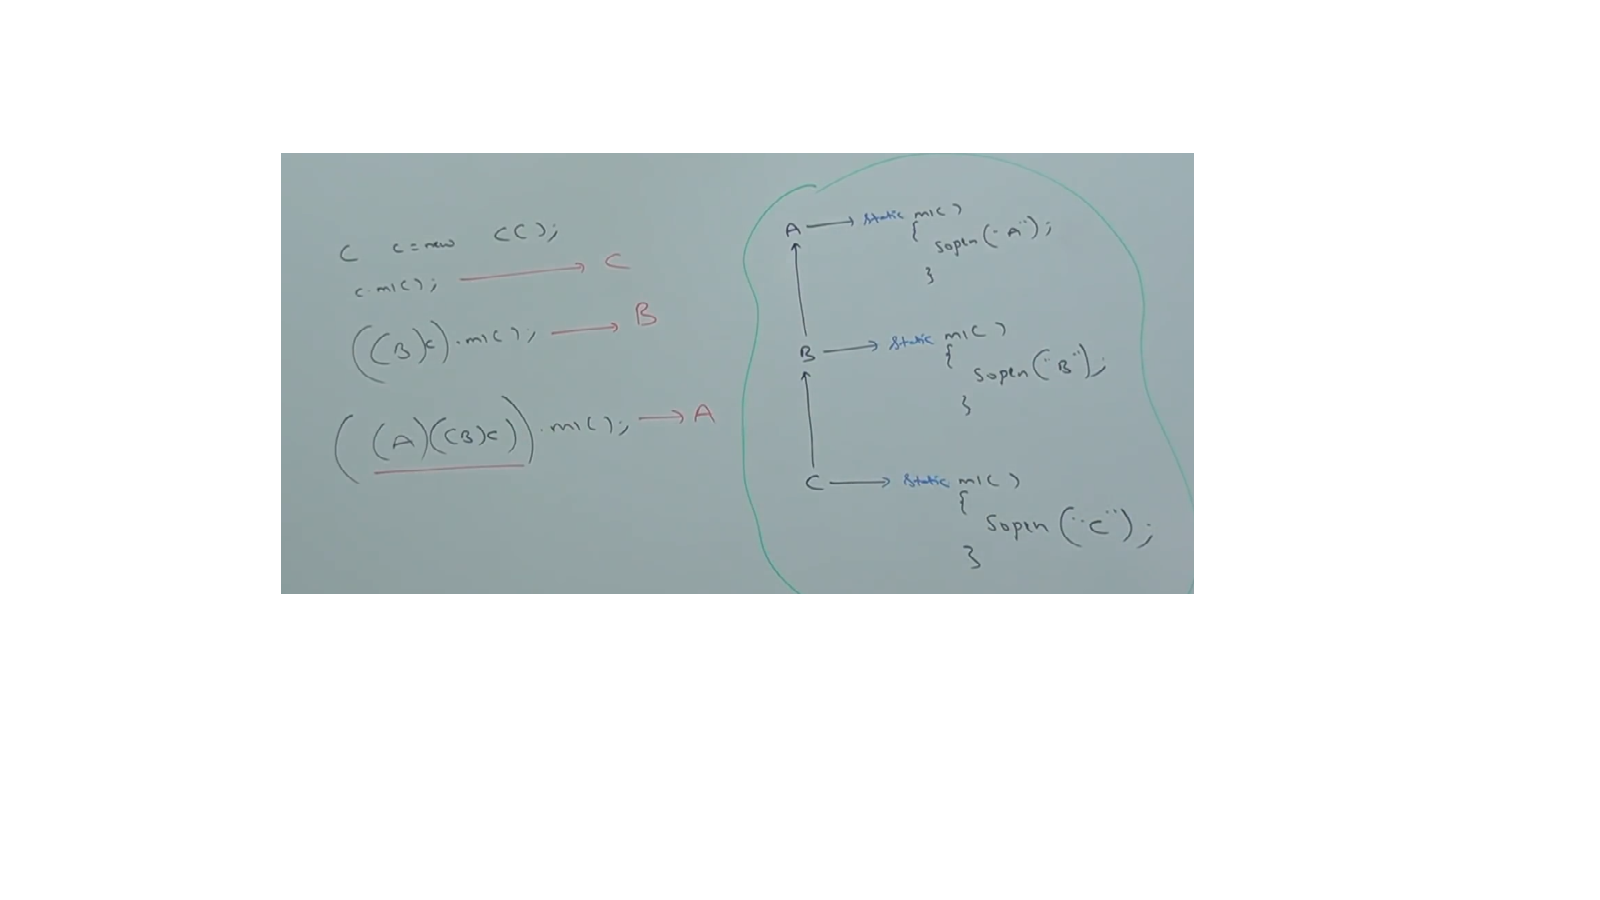 C c = new C();
c.m1(); → C
((B)c).m1(); → B
((A)((B)c)).m1(); → A
A → static m1()
{
sopln("A");
}
B → static m1()
{
sopln("B");
}
C → static m1()
{
sopln("C");
}